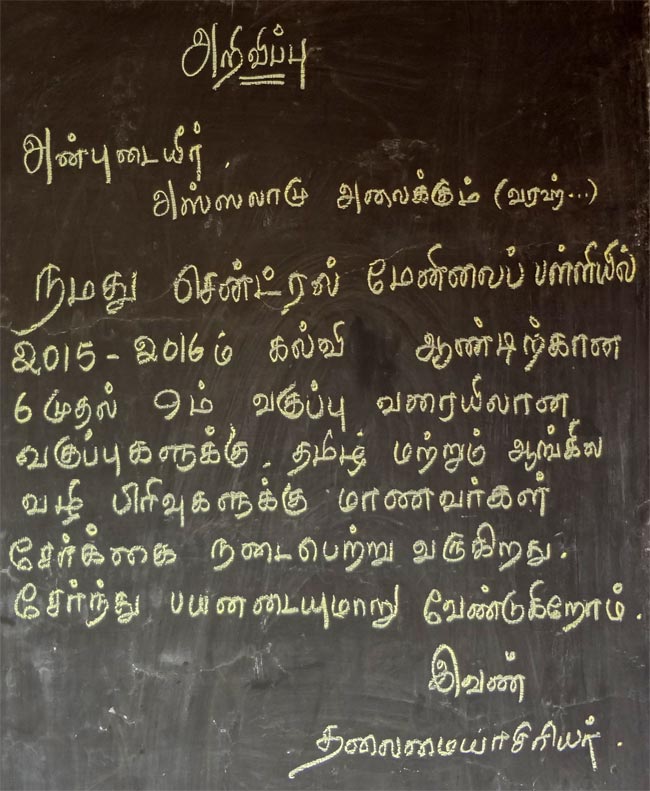 அறிவிப்பு
அன்புடையீர்.
அஸ்ஸலாமு அலைக்கும் (வரஹ்...)
நமது சென்ட்ரல் மேனிலைப் பள்ளியில்
2015 - 2016ம் கல்வி ஆண்டிற்கான
6 முதல் 9ம் வகுப்பு வரையிலான
வகுப்புகளுக்கு. தமிழ் மற்றும் ஆங்கில
வழி பிரிவுகளுக்கு மாணவர்கள்
சேர்க்கை நடைபெற்று வருகிறது.
சேர்ந்து பயனடையுமாறு வேண்டுகிறோம்.
இவண்
தலைமையாசிரியர்.